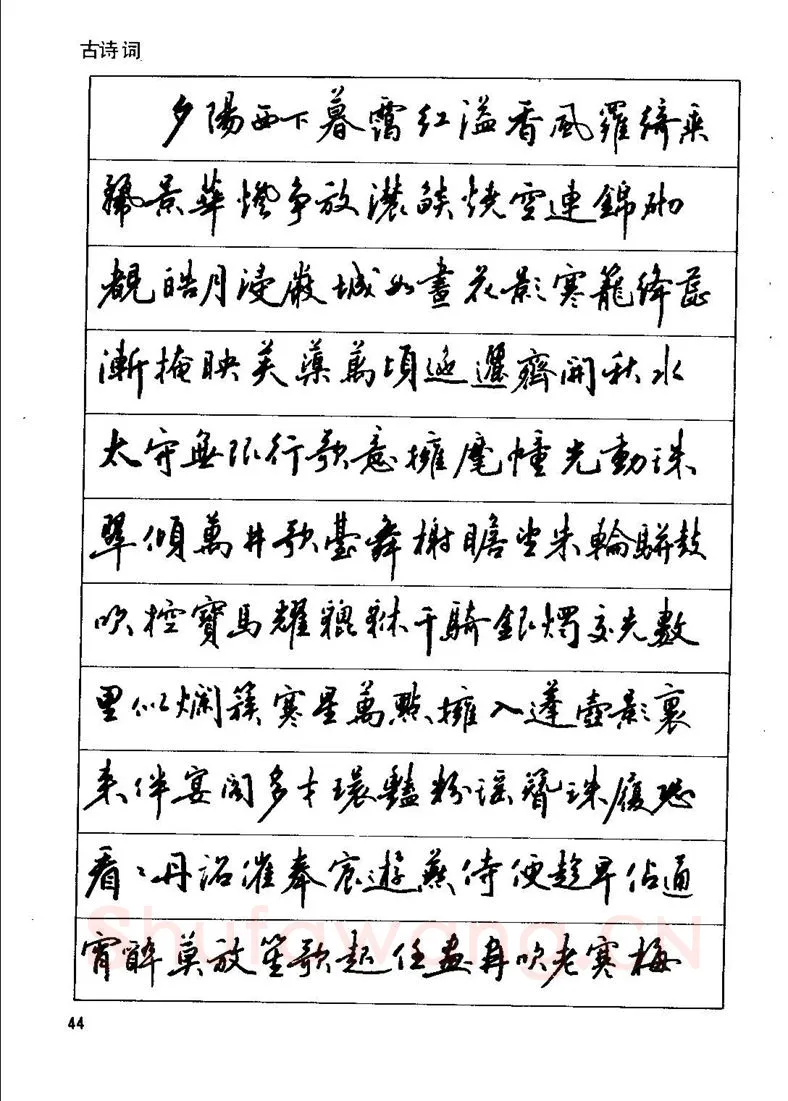 古诗词
夕陽西下暮靄紅溢香風羅綺乘
麗景華燈争放濃燄燒空連錦砌
覩皓月浸嚴城如畫花影寒籠絳蕊
漸掩映芙蕖萬頃迤邐齊開秋水
太守無限行歌意擁麾幢光動珠
翠傾萬井歌臺舞榭瞻望朱輪駢鼓
吹控寶馬耀貔貅千騎銀燭交光數
里似爛簇寒星萬點擁入蓬壺影裏
来伴宴阁多才環豔粉瑶簪珠履恐
看〻丹詔催奉宸遊燕侍便趁早佔通
宵醉莫放笙歌起任畫角吹老寒梅
44
Shufawang.CN